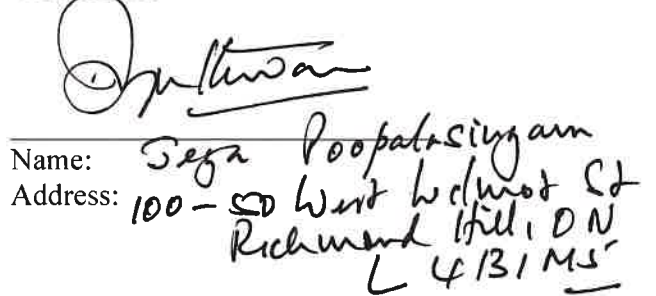 Name: Jega Poopalasingam
Address: 100 - 50 West Wilmot St
Richmond Hill, ON
L4B1M5